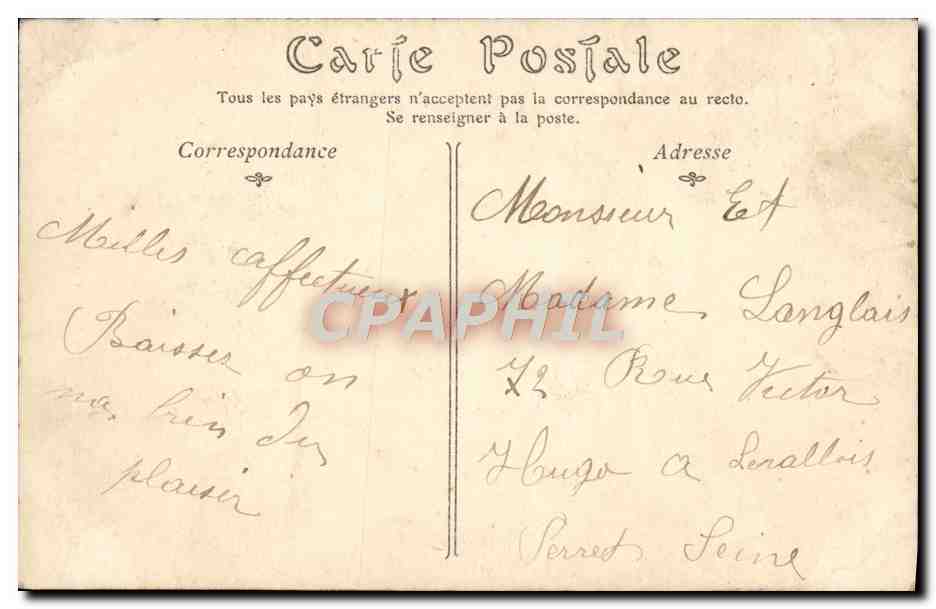 Carte Postale
Tous les pays étrangers n'acceptent pas la correspondance au recto.
Se renseigner à la poste.
Correspondance
Milles affectueux
Baisser on
ma bien du
plaisir
Adresse
Monsieur Et
Madame Langlais
72 Rue Victor
Hugo a Levallois
Perret Seine
CPAPHIL